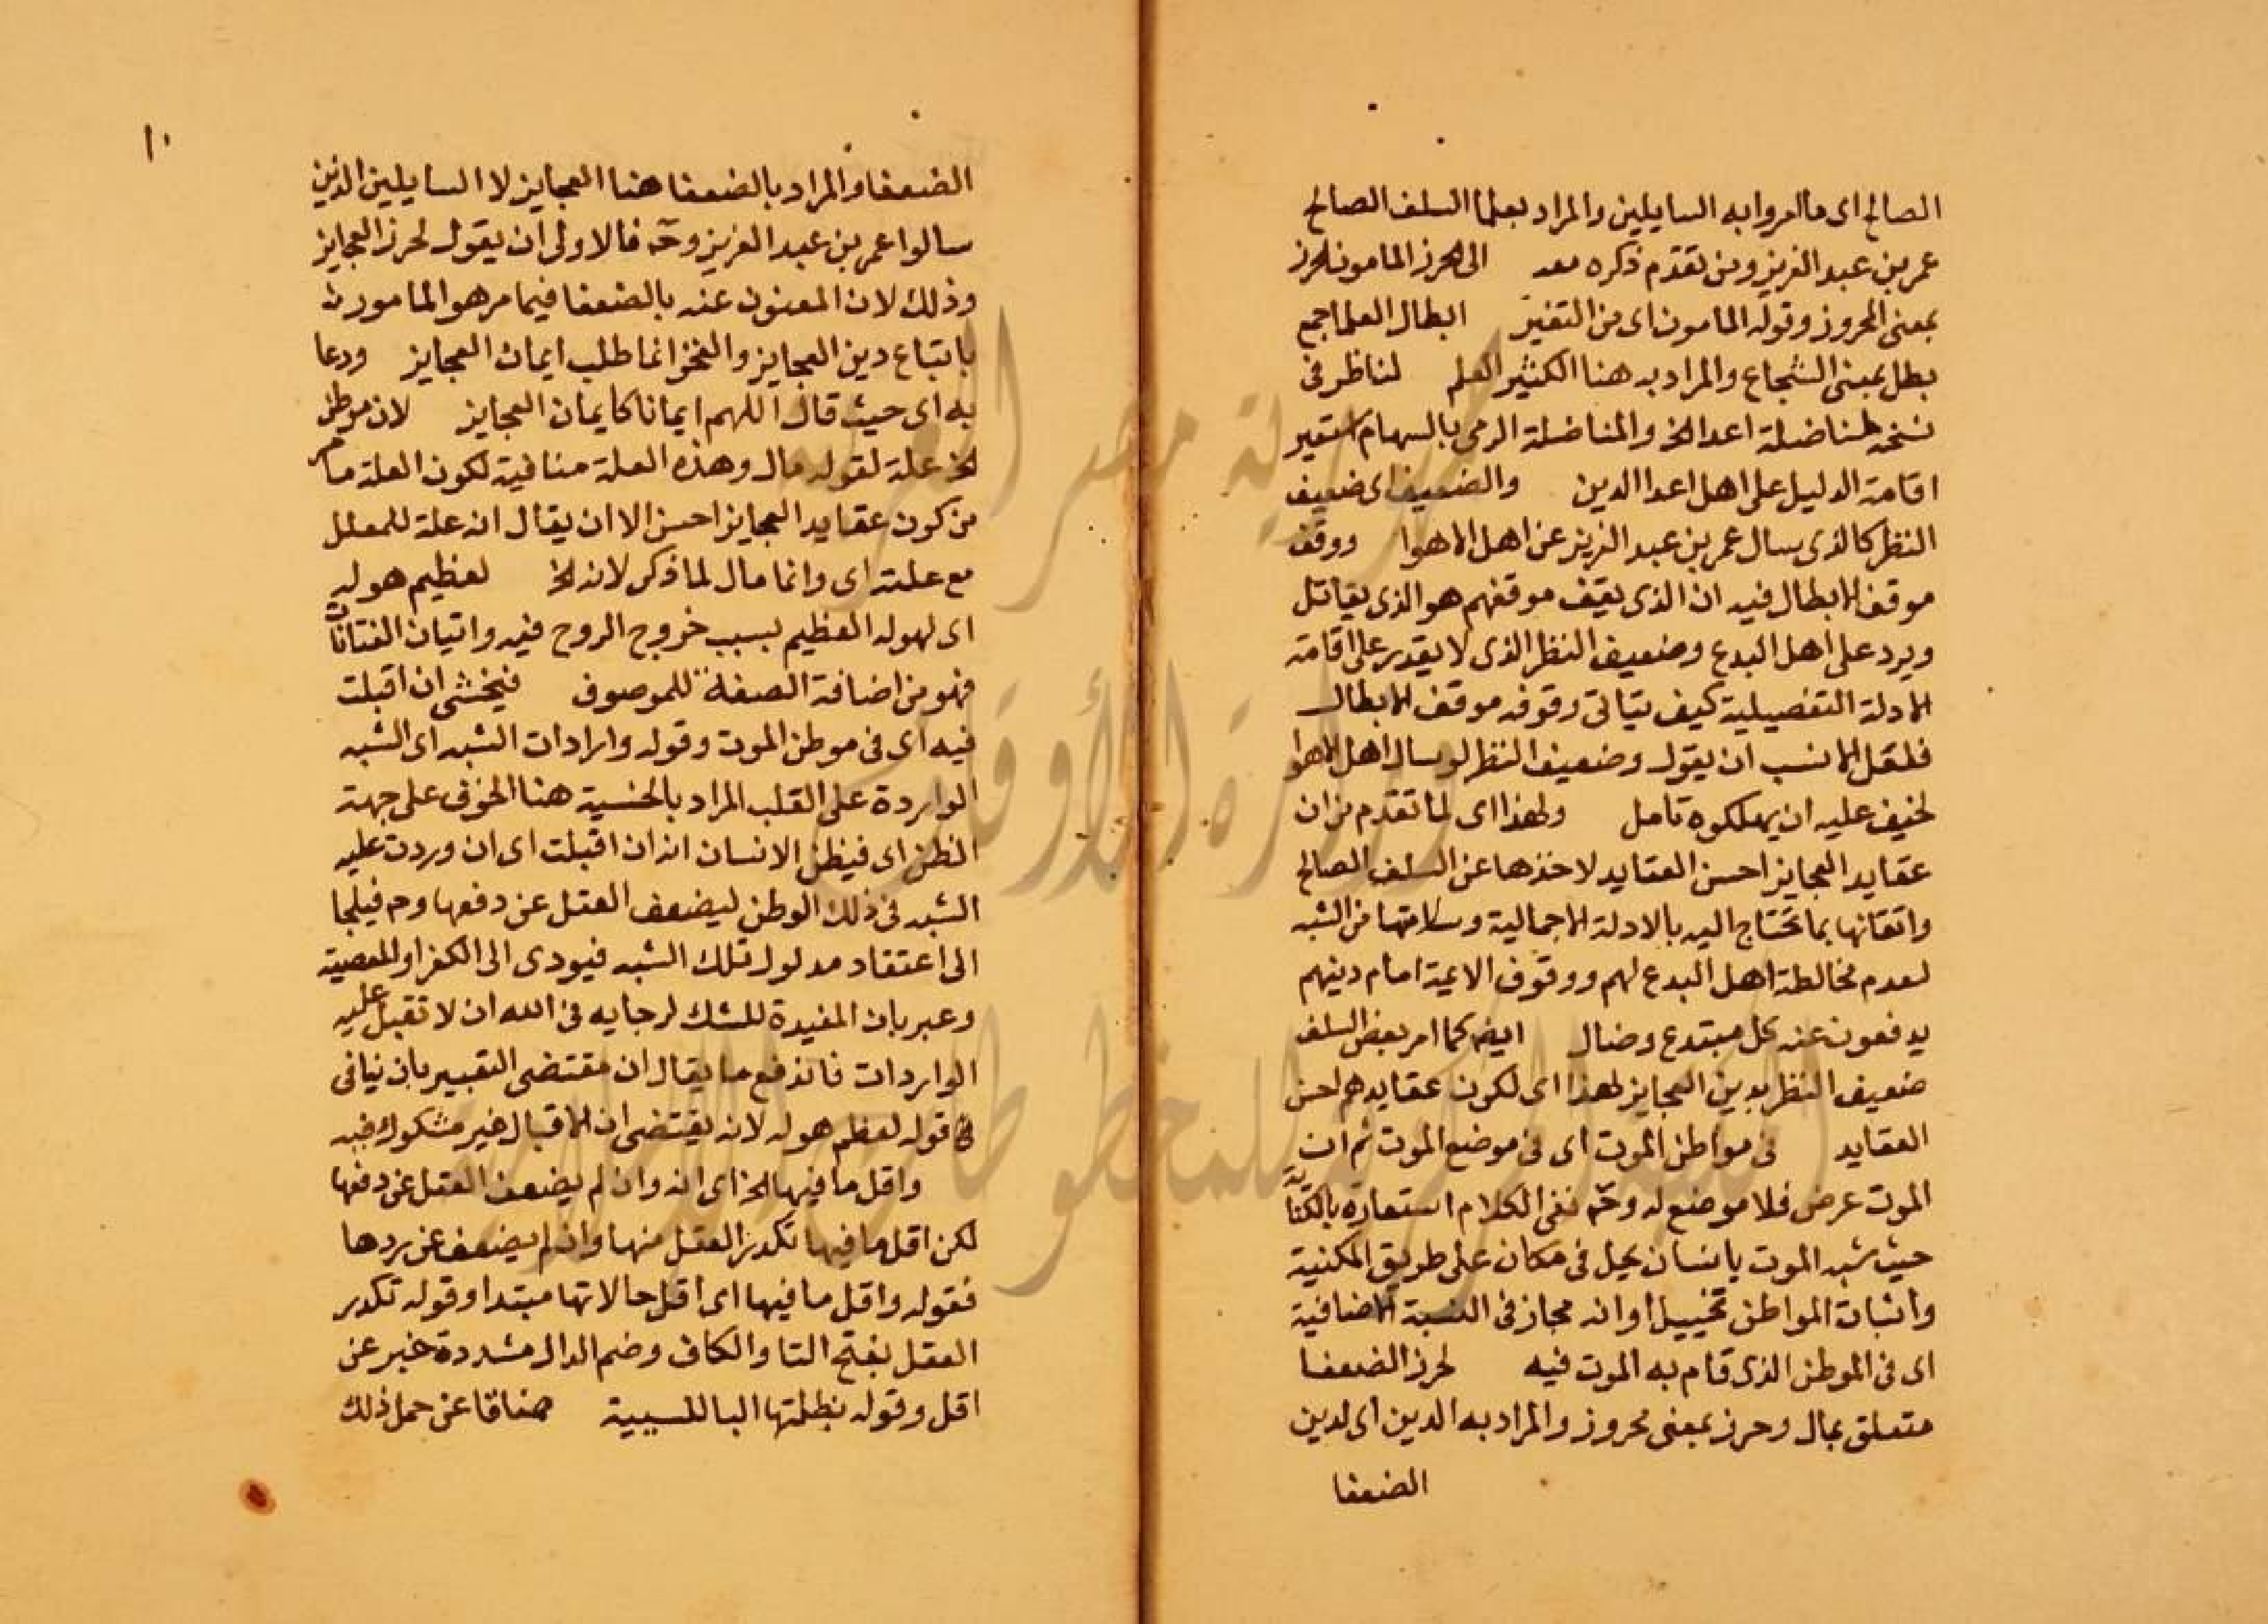 الصالح اى ما امروا به السايلين والمراد بعلما السلف الصالح
عمر بن عبد العزيز ومن تقدم ذكره معه الى الحرز المامون الحرز
بمعنى المحروز وقوله المامون اى من التغير ابطال العلما جمع
بطل بمعنى الشجاع والمراد به هنا الكثير العلم لناظر فى
نسخة لمناضلة اعدا الخ والمناضلة الرمى بالسهام استعير
اقامة الدليل على اهل اعدا الدين والضعيف اى ضعيف
النظر كالذى يسال عمر بن عبد العزيز عن اهل الاهوا ووقف
موقف الابطال فيه ان الذى يقف موقفهم هو الذى يقاتل
ويرد على اهل البدع وضعيف النظر الذى لا يقدر على اقامة
الادلة التفصيلية كيف يتاتى وقوفه موقف الابطال
فلعل الانسب ان يقول وضعيف النظر لو سال اهل الاهوا
لخيف عليه ان يهلكوه تامل ولهذا اى لما تقدم من ان
عقايد العجايز احسن العقايد لاخذها عن السلف الصالح
واتقانها بما تحتاج اليه بالادلة الاجمالية وسلامتها من الشبه
لعدم مخالطة اهل البدع لهم ووقوف الايمة امام دينهم
يدفعون عنه كل مبتدع وضال ايضا كما امر بعض السلف
ضعيف النظر بدين العجايز لهذا اى لكون عقايدهم احسن
العقايد فى مواطن الموت اى فى موضع الموت ثم ان
الموت عرض فلا موضع له وح ففى الكلام استعارة بالكناية
حيث شبه الموت بانسان يحل فى مكان على طريق المكنية
واثبات المواطن تخييل او انه مجاز فى النسبة الاضافية
اى فى الموطن الذى قام به الموت فيه لحرز الضعفا
متعلق بمال وحرز بمعنى محروز والمراد به الدين اى لدين
الضعفا
١٠
الضعفا والمراد بالضعفا هنا العجايز لا السايلين الذين
سالوا عمر بن عبد العزيز وح فالاولى ان يقول لحرز العجايز
وذلك لان المعنون عنه بالضعفا فيما مر هو المامورن
باتباع دين العجايز والفخر انما طلب ايمان العجايز ودعا
به اى حيث قال اللهم ايمانا كايمان العجايز لان موطن
الخ علة لقوله مال وهذه العلة منافية لكون العلة ما مر
من كون عقايد العجايز احسن الا ان يقال انه علة للمعلل
مع علته اى وانما مال لما ذكر لانه الخ لعظيم هوله
اى لهوله العظيم بسبب خروج الروح فيه واتيان الفتانات
فهو من اضافة الصفة للموصوف فيخشى ان اقبلت
فيه اى فى موطن الموت وقوله وارادات الشبه اى الشبه
الواردة على القلب المراد بالخشية هنا الخوف على جهة
الظن اى فيظن الانسان انه ان اقبلت اى ان وردت عليه
الشبه فى ذلك الوطن ليضعف العقل عن دفعها وح فيلجا
الى اعتقاد مدلول تلك الشبه فيودى الى الكفر او المعصية
وعبر بان المفيدة للشك لرجايه فى الله ان لا تقبل عليه
الواردات فاندفع ما يقال ان مقتضى التعبير بان ينافى
قوله لعظم هوله لانه يقتضى ان الاقبال غير مشكوك فيه
واقل ما فيها الخ اى انه وان لم يضعف العقل عن دفعها
لكن اقل ما فيها تكدر العقل منها وان لم يضعف عن ردها
فقوله واقل ما فيها اى اقل حالاتها مبتدا وقوله تكدر
العقل بفتح التا والكاف وضم الدال مشددة خبر عن
اقل وقوله بظلمتها البا للسببية هنا قا عن حمل ذلك